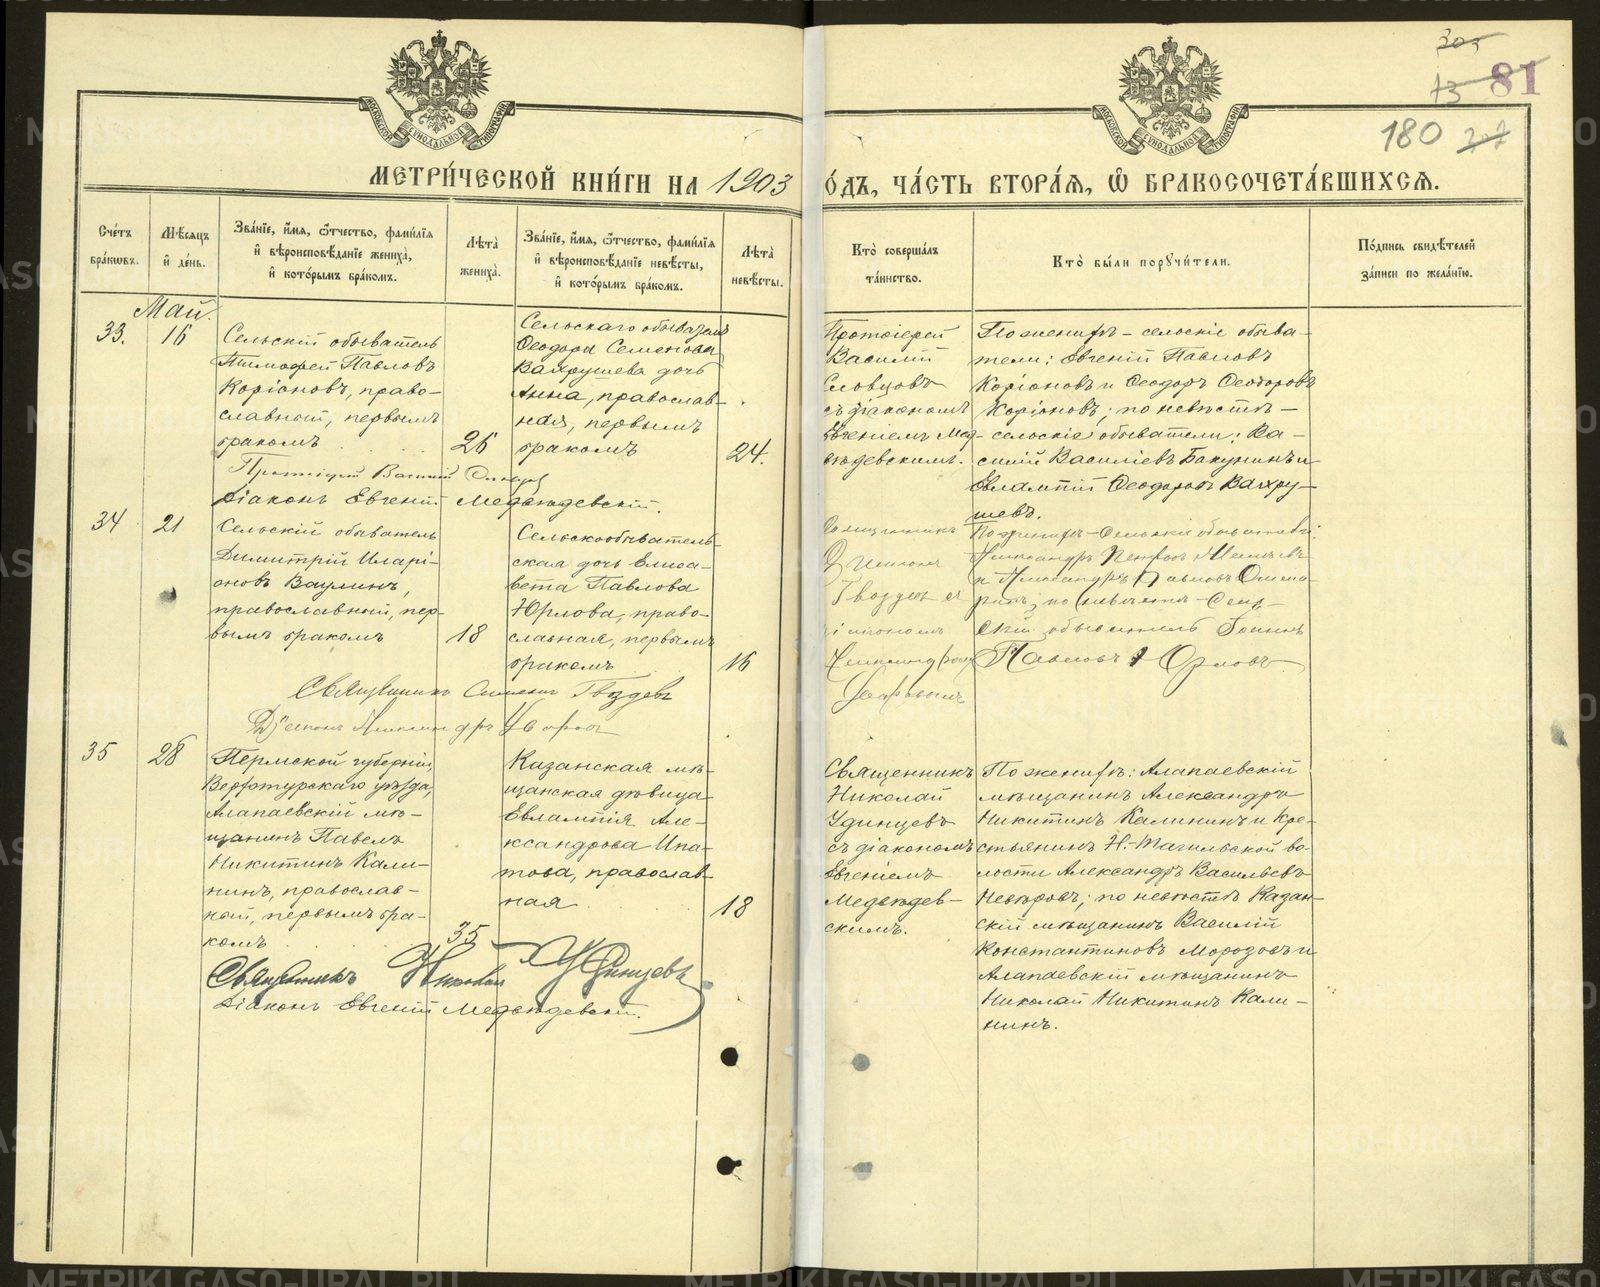 305
13 81
180 207
МОСКОВСКОЙ СѴНОДАЛЬНОЙ ТИПОГРАФІИ
МОСКОВСКОЙ СѴНОДАЛЬНОЙ ТИПОГРАФІИ
МЕТРИ́ЧЕСКОЙ КНИ́ГИ НА 1903
О́ДЪ, ЧА́СТЬ ВТОРА́Я, Ѿ БРАКОСОЧЕТА́ВШИХСЯ.
Сче́тъ
бра́ковъ.
Мѣ́сяцъ
и҆ де́нь.
Зва́нїе, и҆́мя, ѻ҆́тчество, фами́лїя
и҆ вѣроисповѣ́данїе жениха̀,
и҆ кото́рымъ бра́комъ.
Лѣ́та
жениха̀.
Зва́нїе, и҆́мя, ѻ҆́тчество, фами́лїя
и҆ вѣроисповѣ́данїе невѣ́сты,
и҆ кото́рымъ бра́комъ.
Лѣ́та
невѣ́сты.
Кто̀ соверша́лъ
та́инство.
Кто̀ бы́ли порꙋчи́тели.
По́дпись свидѣ́телей
за́писи по жела́нїю.
Май.
33.
16
Сельскій обыватель
Тимофей Павловъ
Коріоновъ, право-
славный, первымъ
бракомъ
26
Сельскаго обывателя
Ѳеодора Семенова
Вахрушева дочь
Анна, православ-
ная, первымъ
бракомъ
24.
Протоіерей
Василій
Словцовъ
съ діакономъ
Евгеніемъ Мед-
вѣдевскимъ.
По женихѣ – сельскіе обыва-
тели: Евгеній Павловъ
Коріоновъ и Ѳеодоръ Ѳеодоровъ
Коріоновъ; по невѣстѣ –
сельскіе обыватели: Ва-
силій Василіевъ Бакунинъ и
Евлампій Ѳеодоровъ Вахру-
шевъ.
Протоіерей Василій Словцовъ
Діаконъ Евгеній Медвѣдевскій.
34
21
Сельскій обыватель
Димитрій Иларі-
оновъ Ваулинъ,
православный, пер-
вымъ бракомъ
18
Сельскообыватель-
ская дочь Елиса-
вета Павлова
Юрлова, право-
славная, первымъ
бракомъ
16
Священникъ
Гвоздевъ съ
діакономъ
Александромъ
По женихѣ – Сельскіе обыватели
Александръ Петровъ
и Александръ Павловъ
по невѣстѣ – Сель-
скій обыватель
Павловъ Юрловъ
Священникъ Гвоздевъ
Діаконъ Александръ
35
28
Пермской губерніи,
Верхотурскаго уѣзда,
Алапаевскій мѣ-
щанинъ Павелъ
Никитинъ Кали-
нинъ, православ-
ный, первымъ бра-
комъ
35
Казанская мѣ-
щанская дѣвица
Евлампія Але-
ксандрова Ипа-
това, православ-
ная
18
Священникъ
Николай
Удинцевъ
съ діакономъ
Евгеніемъ
Медвѣдев-
скимъ.
По женихѣ: Алапаевскій
мѣщанинъ Александръ
Никитинъ Калининъ и кре-
стьянинъ Н.-Тагильской во-
лости Александръ Васильевъ
Невѣровъ; по невѣстѣ Казан-
скій мѣщанинъ Василій
Константиновъ Морозовъ и
Алапаевскій мѣщанинъ
Николай Никитинъ Кали-
нинъ.
Священникъ Николай Удинцевъ
Діаконъ Евгеній Медвѣдевскій.
METRIKI.GASO-URAL.RU